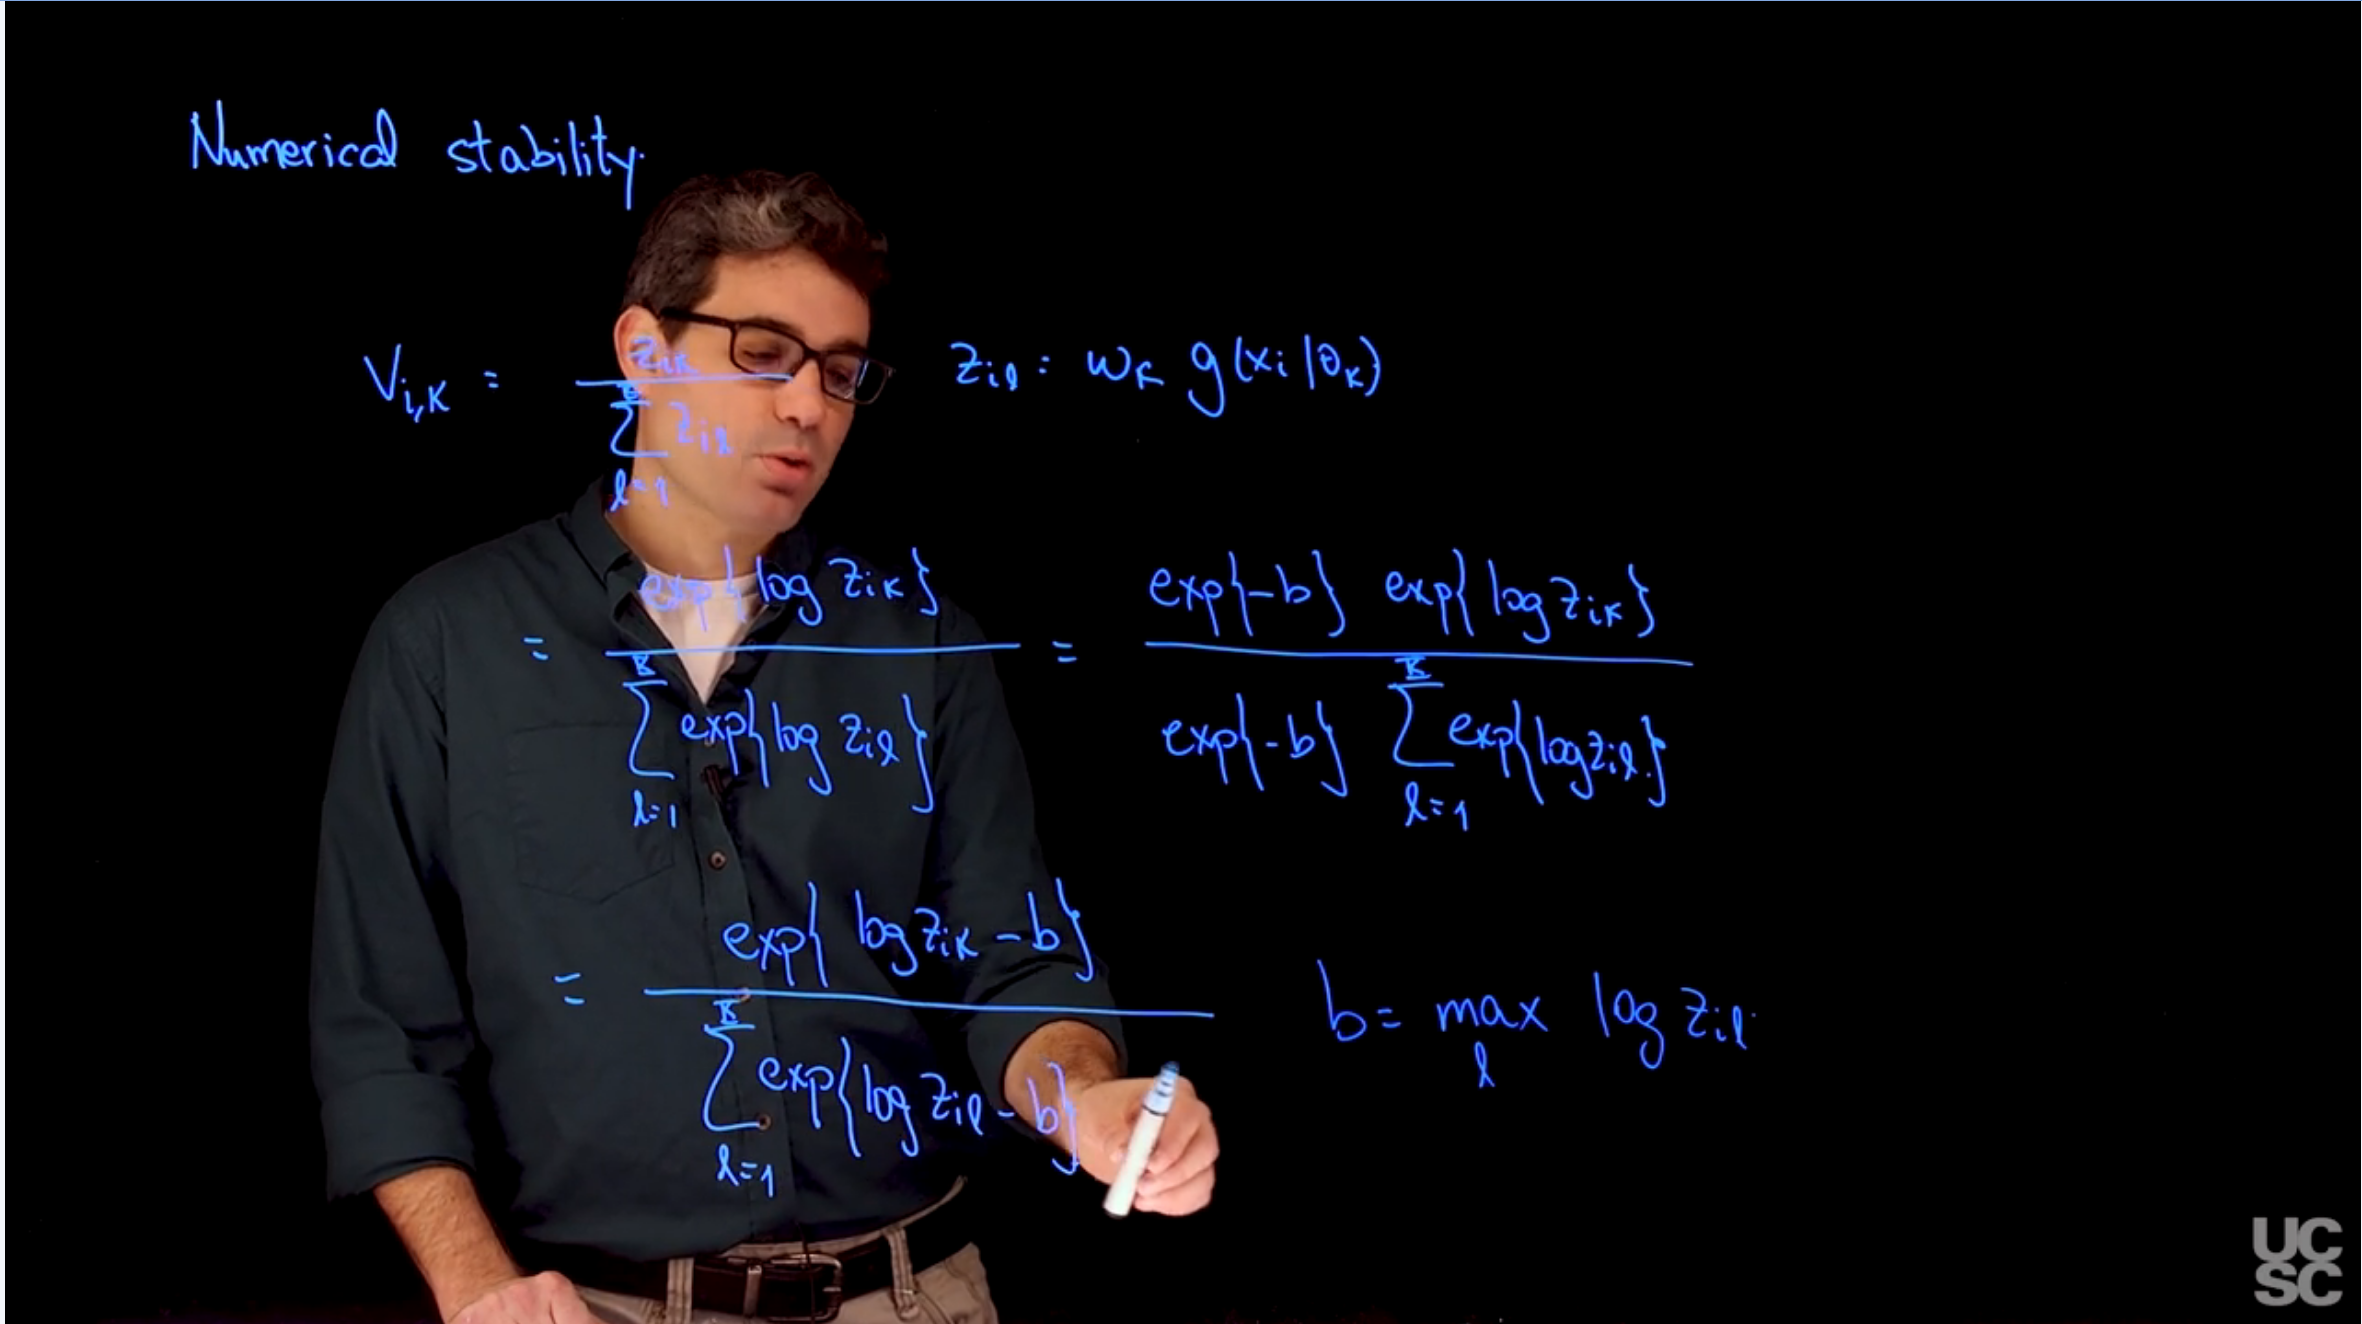 Numerical stability.
V_{i,K} = \frac{z_{iK}}{\sum_{l=1}^{K} z_{il}}   z_{il} = w_K g(x_i | θ_K)
= \frac{exp{log z_{iK}}}{\sum_{l=1}^{K} exp{log z_{il}}} = \frac{exp{-b} exp{log z_{iK}}}{exp{-b} \sum_{l=1}^{K} exp{log z_{il}.}}
= \frac{exp{log z_{iK} - b}}{\sum_{l=1}^{K} exp{log z_{il} - b}}   b = max_l log z_{il}.
UC
SC